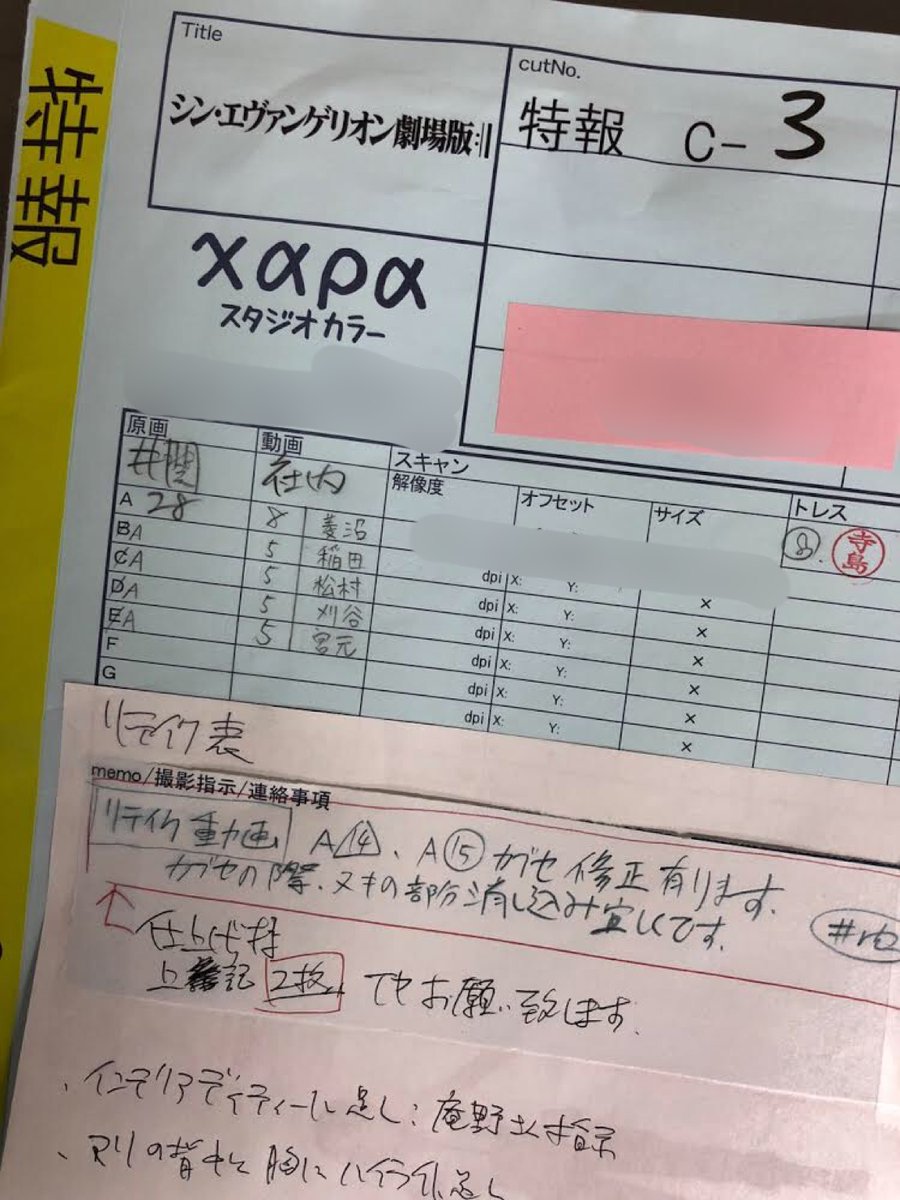 特報
Title
シン・エヴァンゲリオン劇場版:||
cutNo.
特報 C- 3
χαρα
スタジオカラー
原画 動画 スキャン
井関 社内 解像度 オフセット サイズ トレス
A 28 8 菱沼 8 寺島
BA 5 稲田
CA 5 松村 dpi X: Y: ×
DA 5 刈谷 dpi X: Y: ×
EA 5 宮元 dpi X: Y: ×
F dpi X: Y: ×
G dpi X: Y: ×
dpi X: Y: ×
リテイク表
memo/撮影指示/連絡事項
リテイク動画 A14、A15 ガセ修正有ります。
ガセの際、ヌキの部分消し込み宜しくです。
仕上げ様
上記2枚でお願い致します。
、インテリアディティール足し:庵野さん指示
、マリの背中と胸にハイライト足し